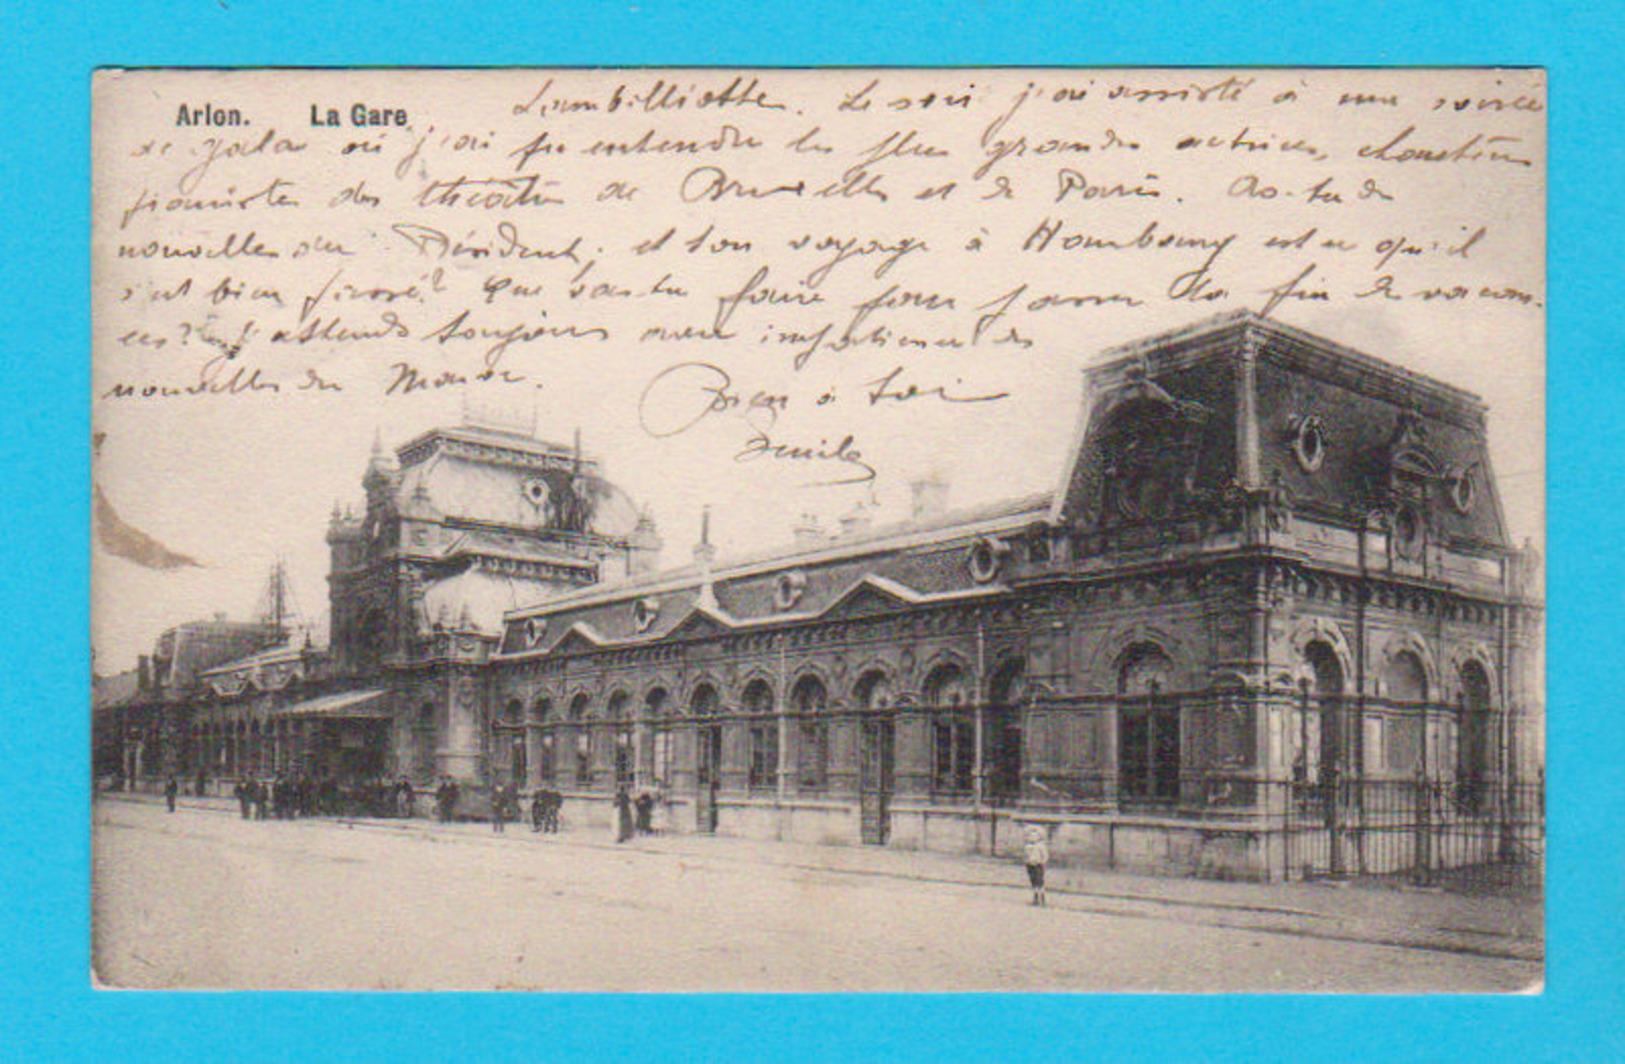 Arlon. La Gare
Lambilliotte. Le soir j'ai assisté à une soirée
de gala où j'ai pu entendre les plus grandes actrices, chanteurs
pianistes des théâtres de Bruxelles et de Paris. As-tu de
nouvelles du Président, et ton voyage à Hombourg est-ce qu'il
s'est bien passé? Que vas-tu faire pour passer la fin de vacan-
ces? J'attends toujours avec impatience des
nouvelles du
Bien à toi